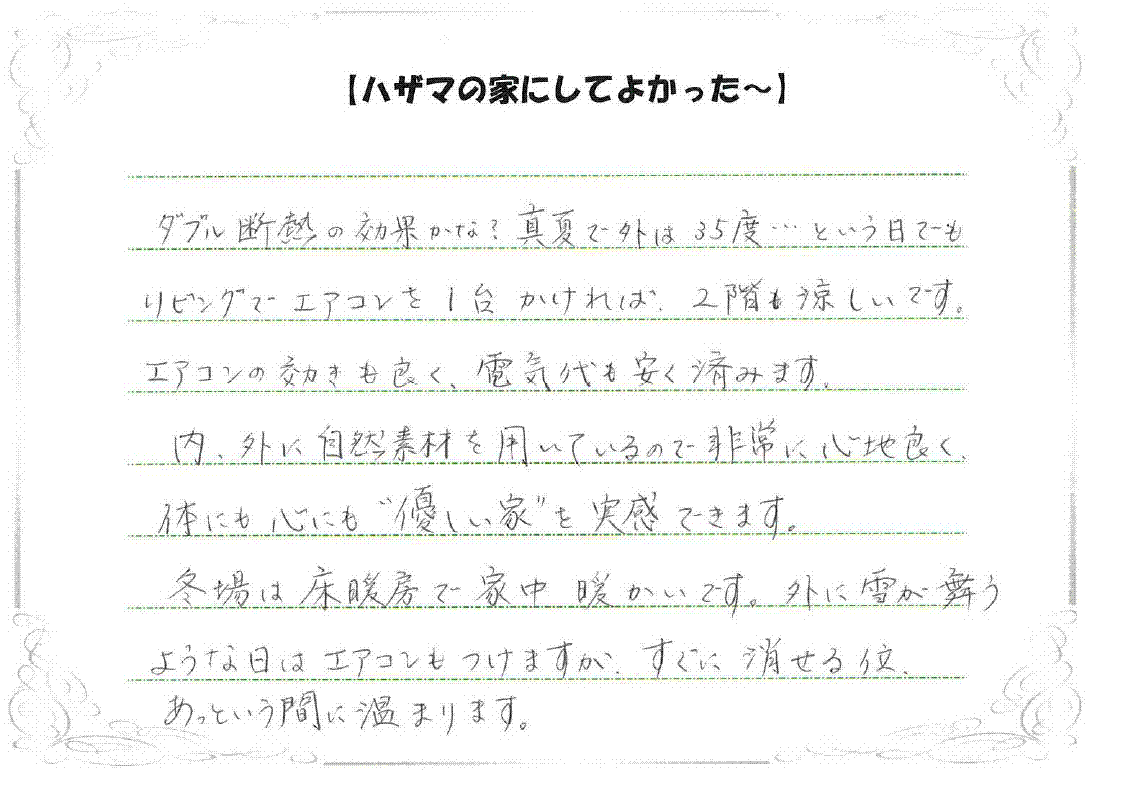 【ハザマの家にしてよかった～】
ダブル断熱の効果かな？真夏で外は35度…という日でも
リビングでエアコンを1台かければ、2階も涼しいです。
エアコンの効きも良く、電気代も安く済みます。
内、外に自然素材を用いているので非常に心地良く、
体にも心にも“優しい家”を実感できます。
冬場は床暖房で家中暖かいです。外に雪が舞う
ような日はエアコンもつけますが、すぐに消せる位、
あっという間に温まります。